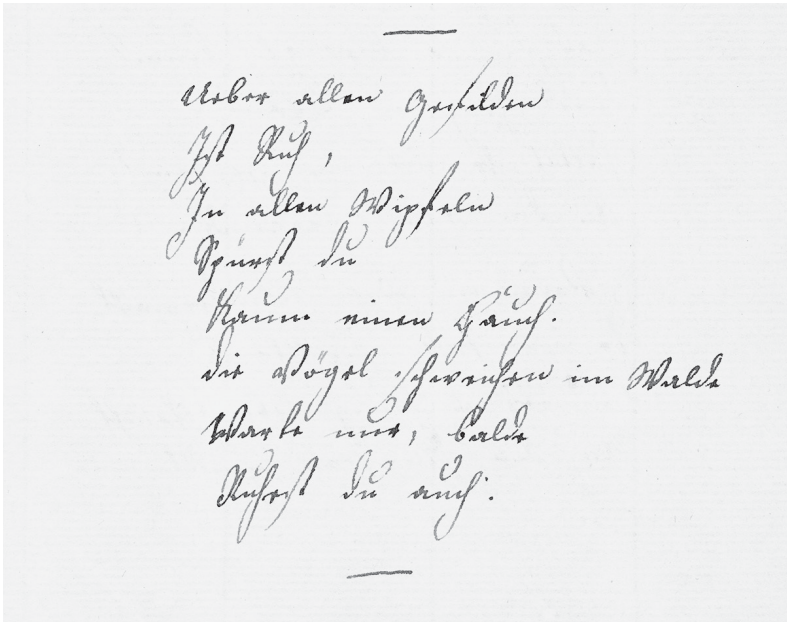 Ueber allen Gefilden
Ist Ruh,
In allen Wipfeln
Spürst du
Kaum einen Hauch.
die Vögel schweigen im Walde
Warte nur, balde
Ruhest du auch.